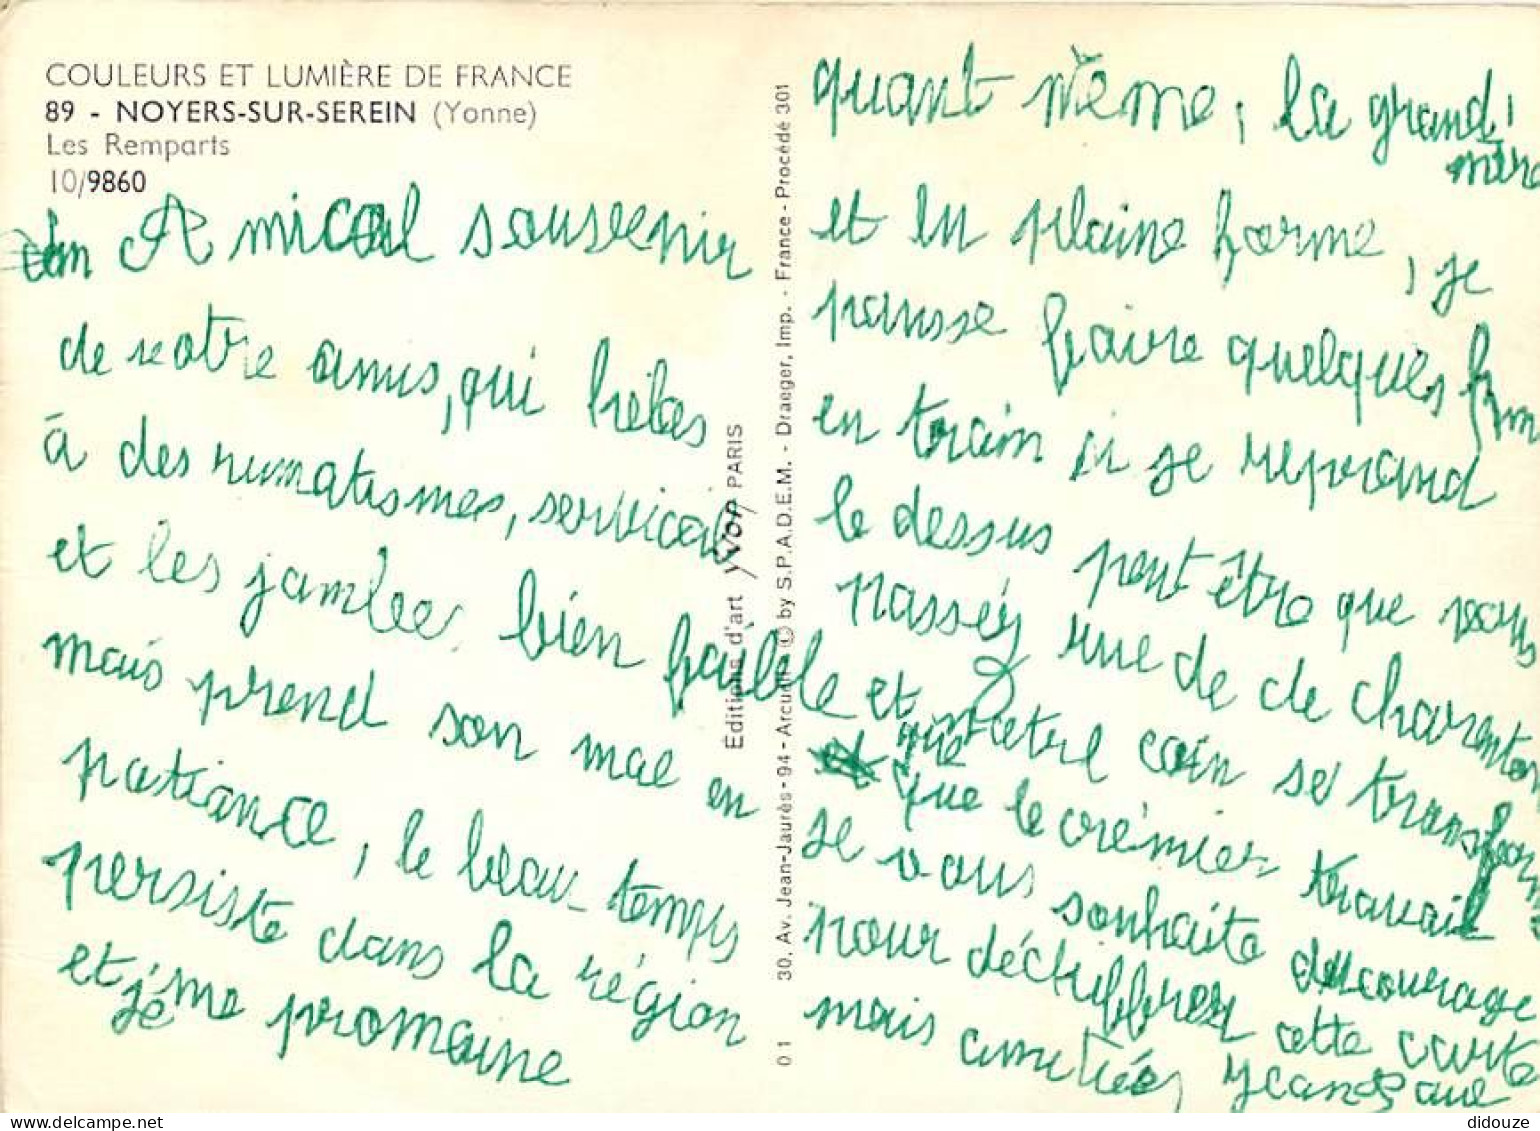 COULEURS ET LUMIÈRE DE FRANCE
89 - NOYERS-SUR-SEREIN (Yonne)
Les Remparts
10/9860
Amical souvenir
de notre amis, qui hélas
à des rumatismes, servical
et les jambes bien faible
mais prend son mal en
patiance, le beau temps
persiste dans la région
et je me promaine
Editions d'art YVON PARIS
30, Av. Jean-Jaurès - 94 - Arcueil © by S.P.A.D.E.M. - Draeger, Imp. - France - Procédé 301
01
quant même, la grand
mère
et en plaine forme, je
pansse faire quelques
en train si je reprand
le dessus peut être que vous
passéz rue de de charenton
et que
votre coin se
que le crémier travail
je vous souhaite du courage
pour déchiffrer cette carte
mais amitiés
didouze